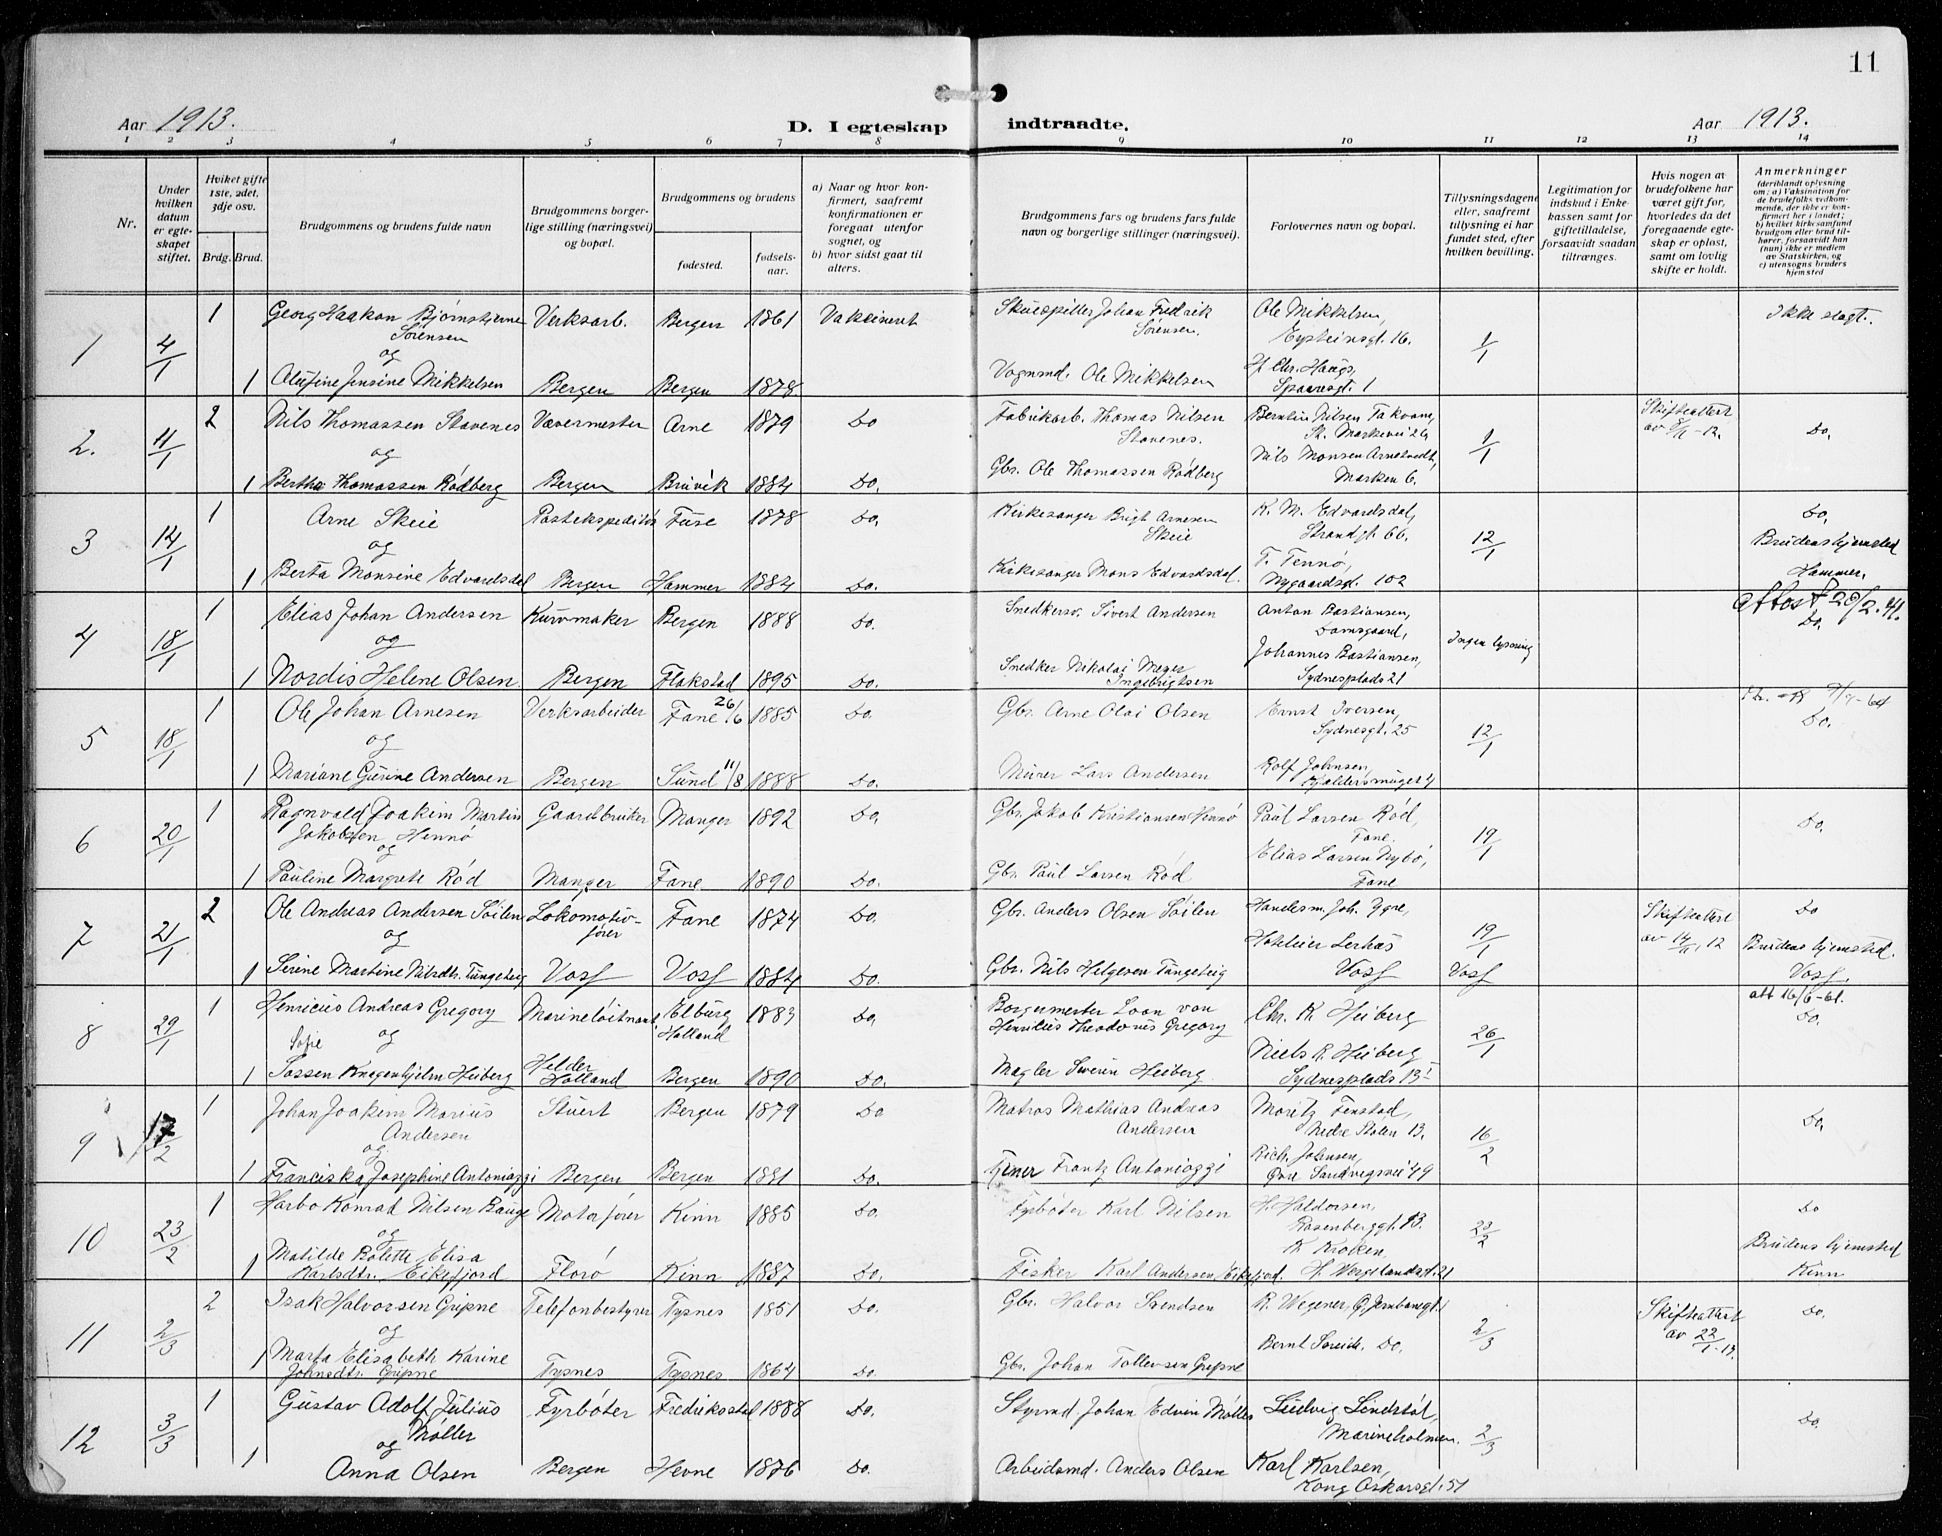 11
Aar 1913.
D. I egteskap indtraadte.
Aar 1913.
1 2 3 4 5 6 7 8 9 10 11 12 13 14
Nr.
Under hvilken datum er egteskapet stiftet.
Hvilket gifte 1ste, 2det, 3dje osv.
Brdg. Brud.
Brudgommens og brudens fulde navn
Brudgommens borgerlige stilling (næringsvei) og bopæl.
Brudgommens og brudens
fødested. fødselsaar.
a) Naar og hvor konfirmert, saafremt konfirmationen er foregaat utenfor sognet, og
b) hvor sidst gaat til alters.
Brudgommens fars og brudens fars fulde navn og borgerlige stillinger (næringsvei).
Forlovernes navn og bopæl.
Tillysningsdagene eller, saafremt tillysning ei har fundet sted, efter hvilken bevilling.
Legitimation for indskud i Enkekassen samt for giftetilladelse, forsaavidt saadan tiltrænges.
Hvis nogen av brudefolkene har været gift før, hvorledes da det foregaaende egteskap er opløst, samt om lovlig skifte er holdt.
Anmerkninger (deriblandt oplysning om: a) Vaksination for de brudefolks vedkommende, der ikke er konfirmert her i landet; b) hvilket kirkesamfund brudgom eller brud tilhører, forsaavidt han (hun) ikke er medlem av Statskirken, og c) utensogns bruders hjemsted
1 4/1 1 Georg Haakon Bjørnstjerne Sørensen Verksarb. Bergen 1861 Vakcineret Skuespiller Johan Fredrik Sørensen. Ole Mikkelsen, Eysteinsgt. 16. 1/1 Ikke slegt.
og
1 Olufine Jensine Mikkelsen Bergen Bergen 1878 Vognmd. Ole Mikkelsen H. Chr. Haags, 1
2. 11/1 2 Nils Thomassen Stavenes Vævermester Arne 1879 Do Fabrikarb. Thomas Nilsen Stavenes. Berntin Nilsen Takvam, St. Markevei 26, 1/1 Skifteattest av Do.
og
1 Bertha Thomassen Rødberg Bergen Bruvik 1884 Do. Gbr. Ole Thomassen Rødberg Nils Monsen Arnetvedt, Marken 6.
3 14/1 1 Arne Skeie Postekspeditør Fuse 1878 Do. Kirkesanger Brigt Arnesen Skeie K. M. Edvardsdal, Strandgt. 66. 12/1 Do.
og Brudens hjemsted
1 Berta Monsine Edvardsdal Bergen Hammer 1884 Do. Kirkesanger Mons Edvardsdal. T. Tennø, Nygaardsgt. 102 Hammer.
4 18/1 1 Elias Johan Andersen Kurvmaker Bergen 1888 Do. Snedkersv. Sivert Andersen Anton Bastiansen, Damsgaard, Ingen lysning Attest 20/2. 41. Do.
og
1 Nordis Helene Olsen Bergen Flakstad 1895 Do. Snedker Nikolai Meyer Ingebrigtsen Johannes Bastiansen, Sydnesplads 21
5 18/1 1 Ole Johan Arnesen Verksarbeider Fane 26/6 1885 Do. Gbr. Arne Olai Olsen Ernst Iversen, Sydnesgt. 25 12/1 Do.
og
1 Mariane Gurine Andersen Bergen Sund 11/8 1888 Do. Murer Lars Andersen Rolf Johnsen,
6 20/1 1 Ragnvald Joakim Martin Jakobsen Hennø Gaardbruker Manger 1892 Do. Gbr. Jakob Kristiansen Hennø Paul Larsen Rød, Fane 19/1 Do.
og
1 Pauline Margrete Rød Manger Fane 1890 Do. Gbr. Paul Larsen Rød Elias Larsen Nybø, Fane
7 21/1 2 Ole Andreas Andersen Søilen Lokomotivfører Fane 1874 Do. Gbr. Anders Olsen Søilen Handesm. Joh. Ygre, 19/1 Skifteattest av 12 Do
og Hoteleier Lerhus Brudens hjemsted
1 Serine Martine Nilsdtr. Tungeteig Voss Voss 1884 Do. Gbr. Nils Helgesen Tungeteig Voss Voss Voss.
8 29/1 1 Henricus Andreas Gregory Marineløitnant. Elburg Holland 1883 Do. Borgermester Loon van Henricus Theodorus Gregory Chr. K. Heiberg 26/1 att 16/6-61. Do.
Sofie og
1 Sossen Knagenhjelm Heiberg Helder Holland Bergen 1890 Do. Megler Severin Heiberg Niels R. Heiberg Sydnesplads 13
9 17/2 1 Johan Joakim Marius Andersen Stuert Bergen 1879 Do Matros Mathias Andreas Andersen Moritz Fenstad, Nedre Stølen 13. 16/2 Do.
og
1 Franciska Josephine Antoniazzi Bergen Bergen 1881 Do. Frantz Antoniazzi Rich. Johnsen, Øvre Sandvigsvei 49
10 23/2 1 Harbo Konrad Nilsen Bauge Motorfører Kinn 1885 Do. Fyrbøter Karl Nilsen H. Haldorsen, Rosenberggt. 13. 23/2 Do
og Brudens hjemsted
1 Matilde Bolette Elisa Karlsdtr. Eikefjord Florø Kinn 1887 Do. Fisker Karl Andersen Eikefjord. K. Kroken, H. Wergelandsgt. 21 Kinn
11 2/3 2 Isak Halvorsen Gripne Telefonbestyrer Tysnes 1851 Do. Gbr. Halvor Svendsen R. Wegener, Ø. Jernbanegt. 2/3 Skifteattest av 22/1-13. Do.
og
1 Marta Elisabeth Karine Johnsdtr. Gripne Tysnes Tysnes 1864 Do. Gbr. Johan Tollevsen Gripne Bernt Søreide. Do.
12 3/3 1 Gustav Adolf Julius Møller Fyrbøter Fredriksstad 1888 Do. Styrmd. Johan Edvin Møller Ludvig Lindstøl, Marineholmen. 2/3 Do.
og
1 Anna Olsen Bergen Hevne 1876 Do. Arbeidsmd. Anders Olsen Karl Karlsen, Kong Oskarsgt. 51